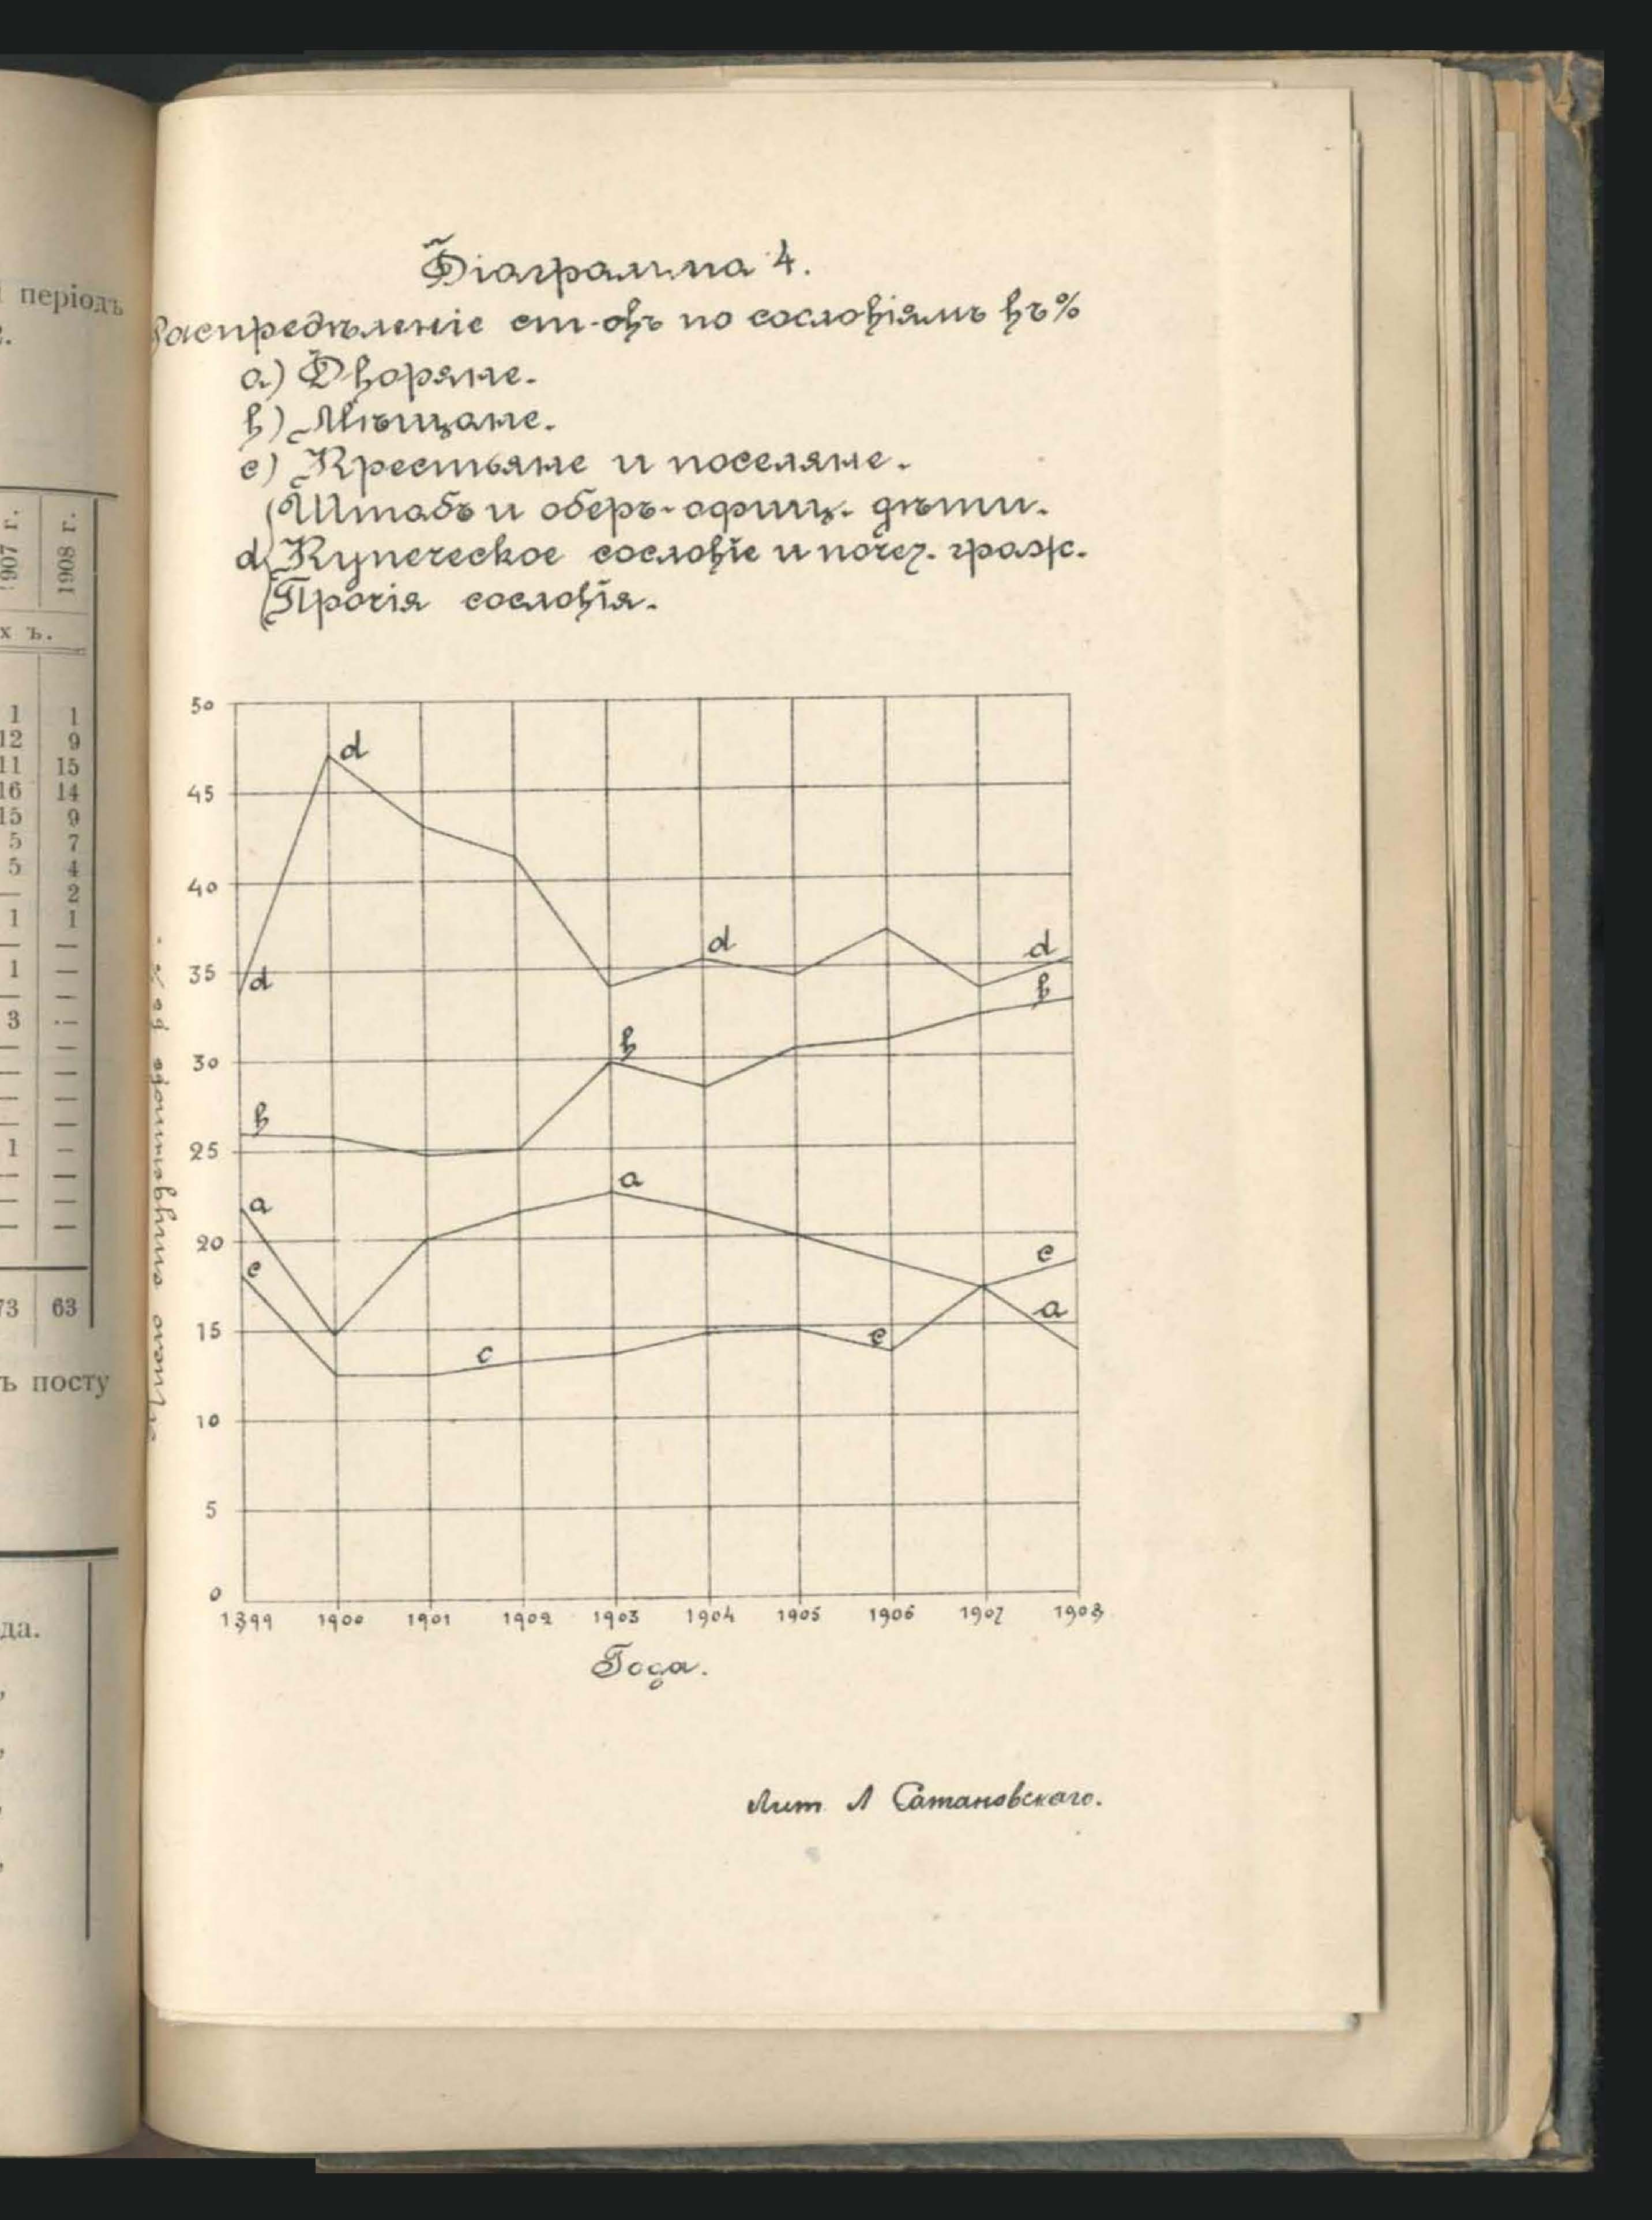 періодъ
907 г. 1908 г.
х ъ.
1 1
12 9
11 15
16 14
15 9
5 7
5 4
— 2
1 1
— —
1 —
— —
3 —
— —
— —
— —
— —
1 —
— —
— —
— —
73 63
ъ посту
да.
Діаграмма 4.
Распредѣленіе ст-овъ по сословіямъ въ %
a) Дворяне.
b) Мѣщане.
c) Крестьяне и поселяне.
Штабъ и оберъ-офиц. дѣти.
d) Купеческое сословіе и почет. граж.
Прочія сословія.
50
d
45
40
d d
35 d
b
b
30
b
25
a
a
20
c c
a
15 c c
10
5
0
1899 1900 1901 1902 1903 1904 1905 1906 1907 1908
Года.
Лит Л Сатановскаго.